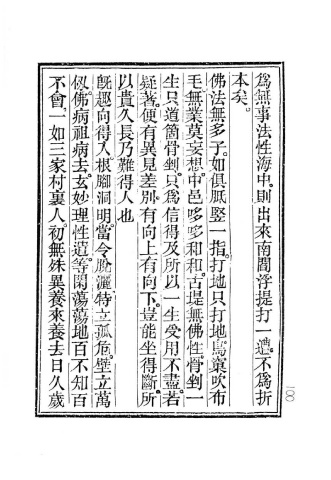 為無事法性海中則出來南閻浮提打一遭不為折
本矣。
佛法無多子如俱胝豎一指打地只打地鳥窠吹布
毛無業莫妄想中邑哆哆和和古堤無佛性骨剉一
生只道箇骨剉只為信得及所以一生受用不盡若
疑著便有異見差別有向上有向下豈能坐得斷所
以貴久長乃難得人也
旣趣向得入根腳洞明當令脫灑特立孤危壁立萬
仞佛病祖病去玄妙理性遣等閑蕩蕩地百不知百
不會一如三家村裏人初無殊異養來養去日久歲
100